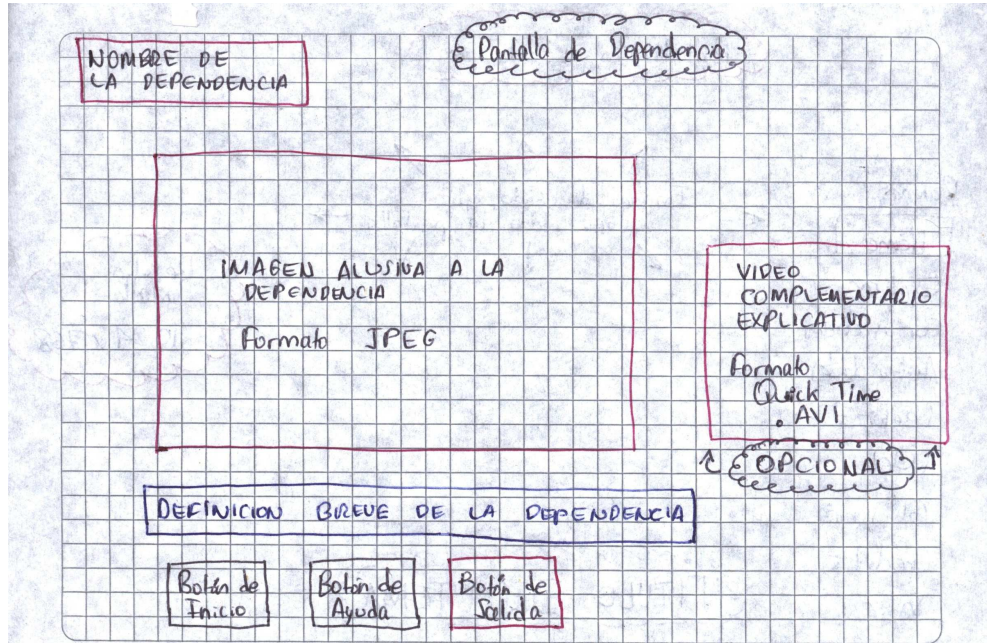 Pantalla de Dependencia
NOMBRE DE
LA DEPENDENCIA
IMAGEN ALUSIVA A LA
DEPENDENCIA
Formato JPEG
VIDEO
COMPLEMENTARIO
EXPLICATIVO
Formato
Quick Time
. AVI
OPCIONAL
DEFINICION BREVE DE LA DEPENDENCIA
Botón de
Inicio
Botón de
Ayuda
Botón de
Salida